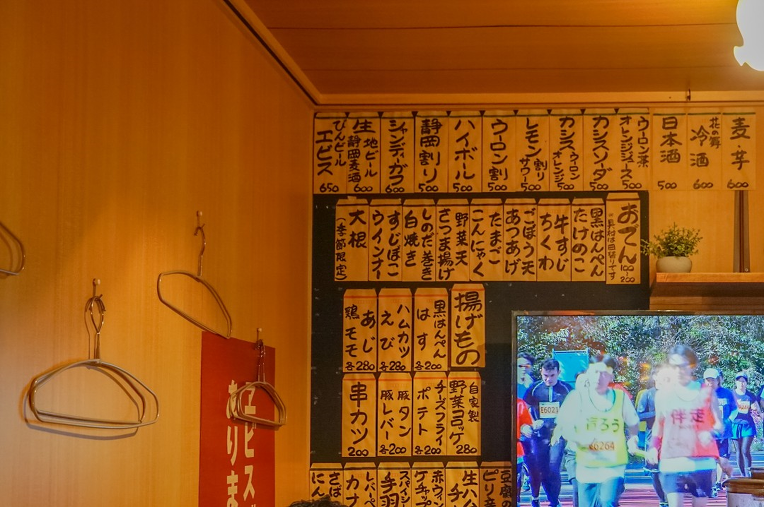 麦・芋
600
花の舞
冷酒
600
日本酒
500
ウーロン茶
オレンジジュース
200
カシスソーダ
600
カシスウーロン
オレンジ
500
レモン割り
サワー
500
ウーロン割
500
ハイボール
500
静岡割り
500
シャンディガフ
600
生
地ビール
静岡麦酒
600
びんビール
エビス
650
おでん
100〜200
黒はんぺん
たけのこ
牛すじ
ちくわ
ごぼう天
あつあげ
たまご
こんにゃく
野菜天
さつま揚げ
しのだ巻き
白焼き
すじぼこ
ウインナー
大根
(季節限定)
揚げもの
黒はんぺん
はす
各200
ハムカツ
えび
各280
あじ
鶏モモ
各280
自家製
野菜コロッケ
280
チーズフライ
ポテト
各200
豚タン
豚レバー
各200
串カツ
200
エビス
あります
E6021
ほろう
E6264
伴走